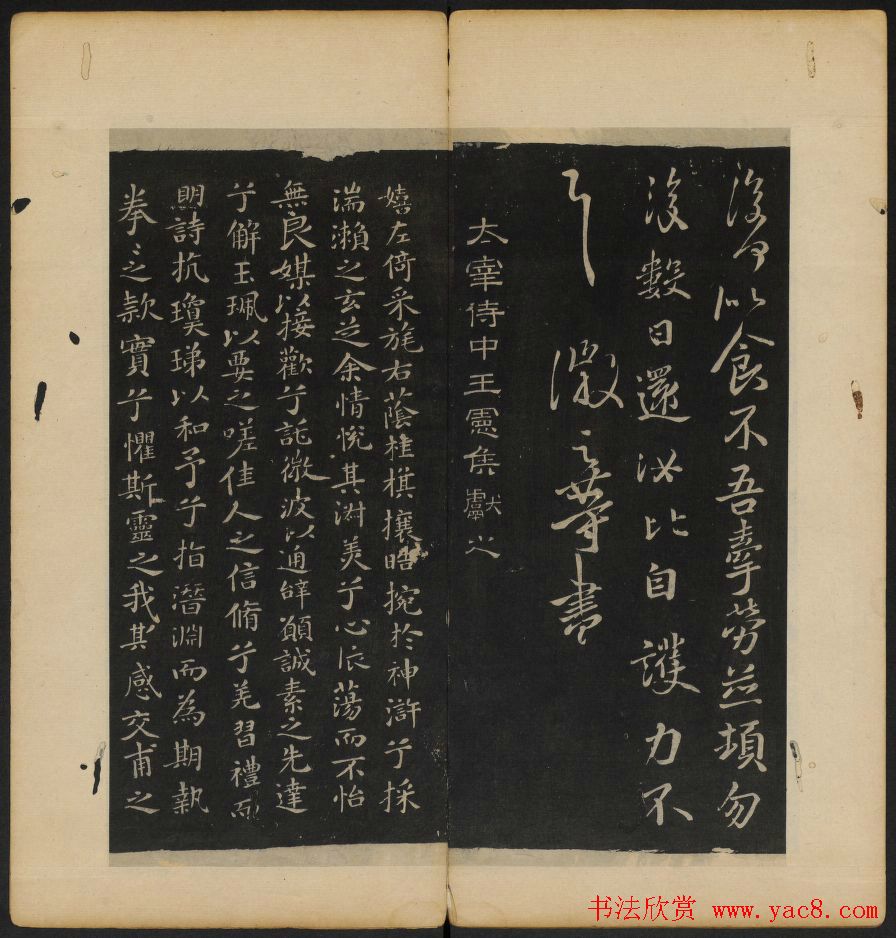 後何似食不吾牽勞並頓勿
復數日還汝比自護力不
具 徽之等書
太宰侍中王憲侯獻之
嬉左倚采旄右蔭桂棋攘晧捥於神滸兮採
湍瀨之玄芝余情悅其淑美兮心振蕩而不怡
無良媒以接歡兮託微波以通辝願誠素之先達
兮解玉珮以要之嗟佳人之信脩兮羌習禮而
朙詩抗瓊珶以和予兮指潛淵而為期執
拳〻之款實兮懼斯靈之我其感交甫之
书法欣赏 www.yac8.com